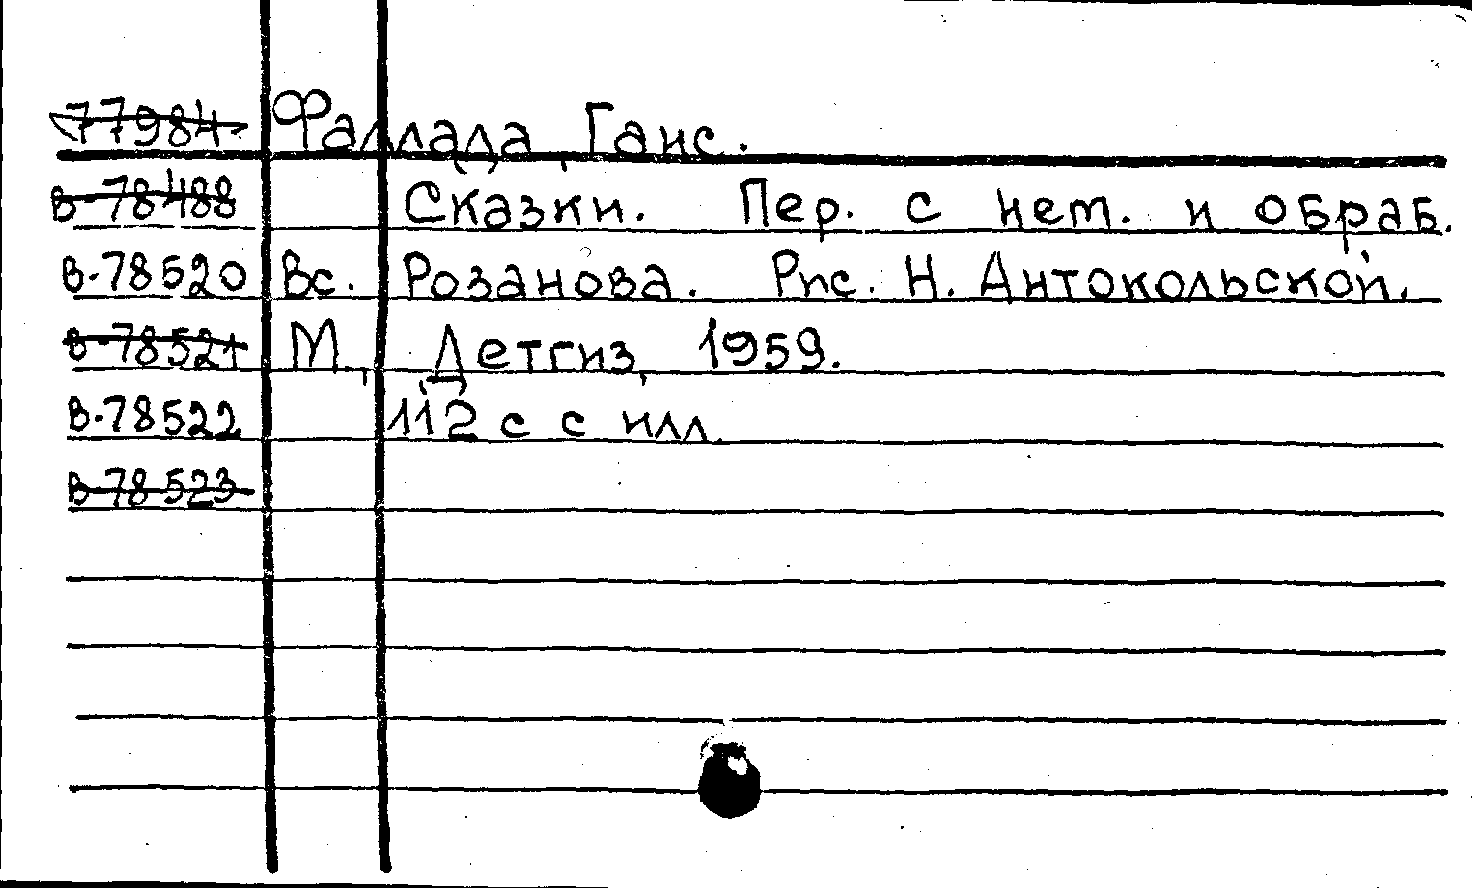 77984 Фаллада, Ганс.
в-78488 Сказки. Пер. с нем. и обраб.
в-78520 Вс. Розанова. Рис. Н. Антокольской.
в-78521 М., Детгиз, 1959.
в-78522 112 с с илл.
в-78523